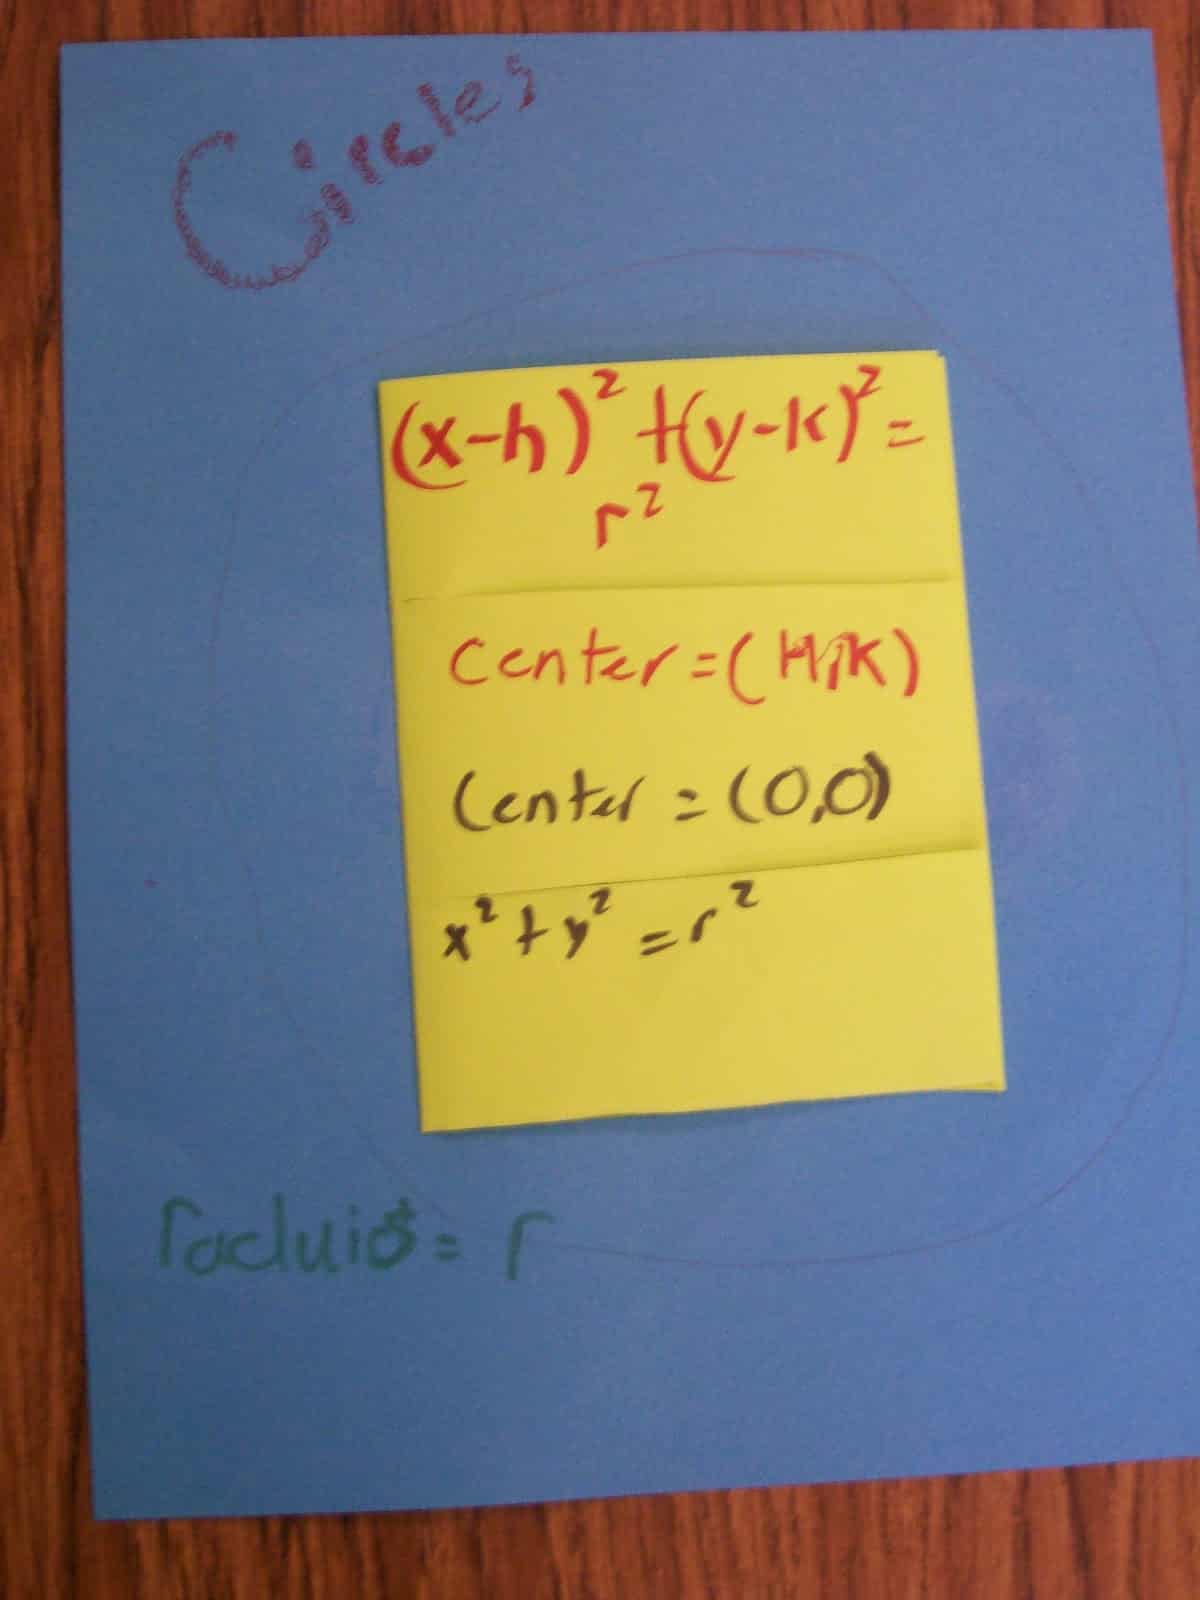 Circles
(x-h)² + (y-k)² =
r²
Center = (H,K)
Center = (0,0)
x² + y² = r²
raduis = r